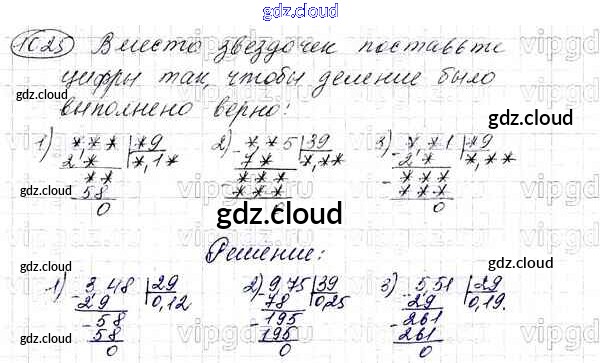 gdz.cloud
1025 Вместо звездочек поставьте
цифры так, чтобы деление было
выполнено верно:
1) *,** |*9   2) *,*5 |39   3) *,*1 |*9
2* |*,1*   7* |*,**   2* |*,**
**   ***   ***
58   ***   ***
0   0   0
gdz.cloud
Решение:
1) 3,48 |29   2) 9,75 |39   3) 5,51 |29
29 |0,12   78 |0,25   29 |0,19.
58   195   261
58   195   261
0   0   0
gdz.cloud